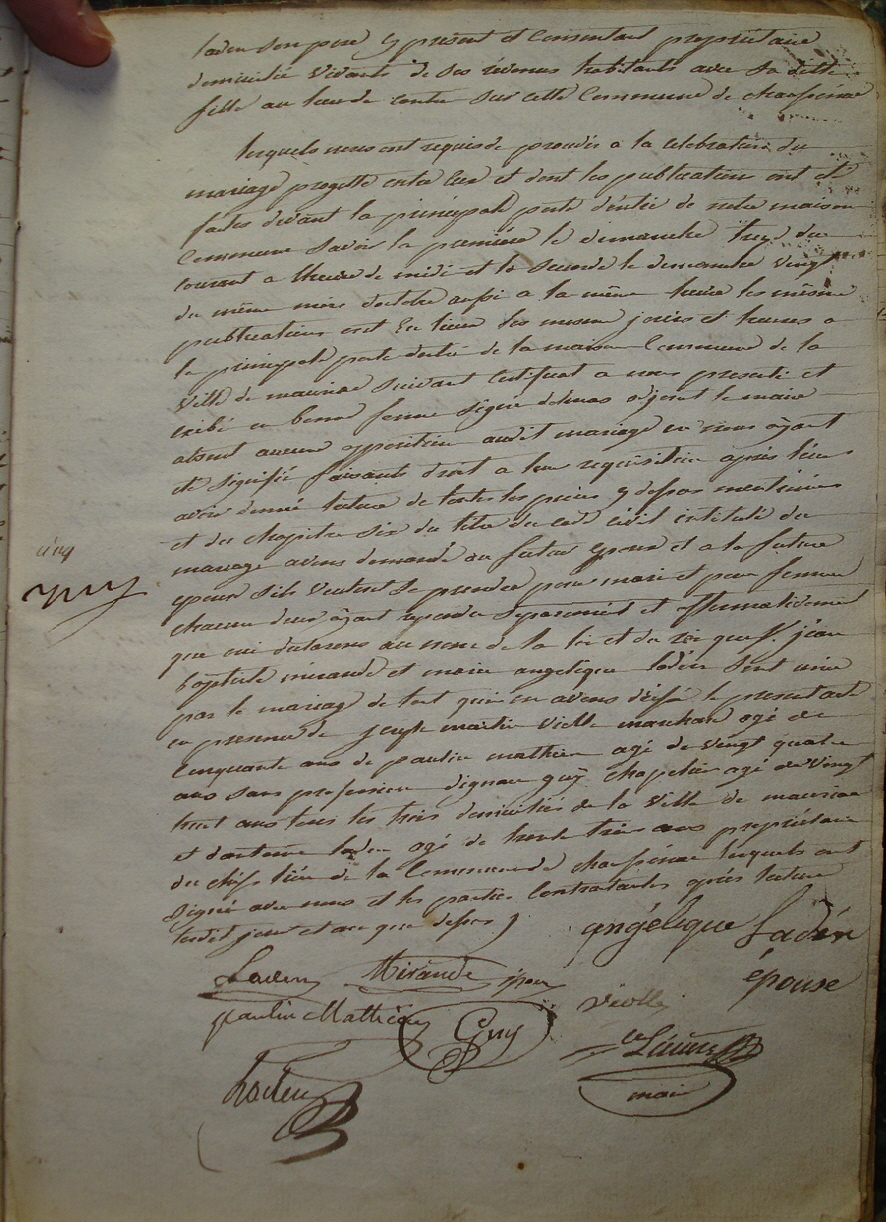 laden son pere cy présent et Consentant propriétaire
domicilié vivants de ses revenus habitants avec sa dite
fille au lieu de sur cette Commune de
lesquels nous ont requis de proceder a la celebration du
mariage projetté entre eux et dont les publications ont été
faites devant la principale porte d'entrée de notre maison
Commune savoir la premiere le dimanche treze du
courant a l'heure de midi et la seconde le dimanche vingt
du même mois doctobre aussi a la même heure les même
publications ont eu lieux les mesme jours et heures a
la principale porte dentrée de la maison Commune de la
ville de mauriac suivant Certificat a nous presenté et
exibé en bonne forme signé delmas adjoint le maire
aucune opposition audit mariage ne nous ayant
été signifié faisants droit a leur requisition après leurs
avoir donné lecture de toutes les pieces y dessus mentionnées
et du chapitre six du titre du code Civil intitulé du
mariage avons demandé au futur epoux et a la future
epouse s'ils veulent se prendre pour mari et pour femme
chacun deux ayant repondu separement et affirmativement
que oui declarons au nom de la loi et du roi que Sr. jean
baptiste mirande et marie angelique ladén sont unis
par le mariage de tout quoi en avons dressé le present acte
en presence de joseph martin vielle marchan agé de
Cinquante ans de paulin mathieu agé de vingt quatre
ans sans profession dignau guy chapelier agé de vingt
huit ans tous les trois domiciliés de la ville de mauriac
et dantoine laden agé de trente trois ans propriétaire
du chef lieu de la Commune de lesquels ont
signé avec nous et les parties Contractantes après lecture
ledit jour et an que dessus
cinq
angélique Ladén
épouse
Laden Mirande époux
paulin Mathieu Guy vielle
Laden
maire